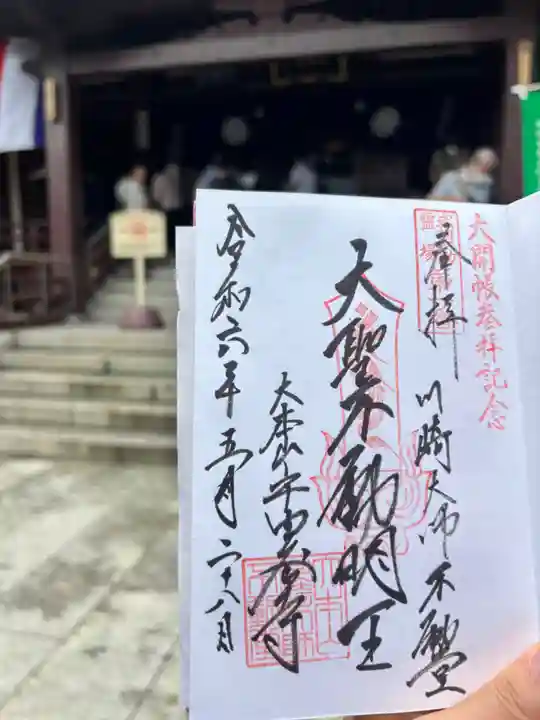 大開帳参拝記念
奉拝
川崎大師不動堂
大聖不動明王
大本山平間寺
令和六年五月二十八日